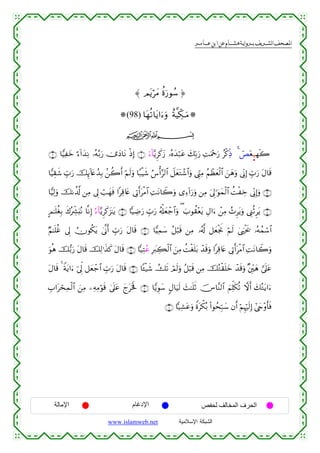 المصحف الشريف برواية هشام عن ابن عامر
﴿ سُورَةُ مَرْيَمَ ﴾
مَكِّيَّةٌ وَءَايَاتُهَا (98)
بِسْمِ ٱللَّهِ ٱلرَّحْمَٰنِ ٱلرَّحِيمِ
كٓهيعٓصٓ ذِكْرُ رَحْمَتِ رَبِّكَ عَبْدَهُۥ زَكَرِيَّآءَ ۝ إِذْ نَادَىٰ رَبَّهُۥ نِدَآءً خَفِيًّا ۝
قَالَ رَبِّ إِنِّى وَهَنَ ٱلْعَظْمُ مِنِّى وَٱشْتَعَلَ ٱلرَّأْسُ شَيْبًا وَلَمْ أَكُنۢ بِدُعَآئِكَ رَبِّ شَقِيًّا
۝ وَإِنِّى خِفْتُ ٱلْمَوَٰلِىَ مِن وَرَآءِى وَكَانَتِ ٱمْرَأَتِى عَاقِرًا فَهَبْ لِى مِن لَّدُنكَ وَلِيًّا
۝ يَرِثُنِى وَيَرِثُ مِنْ ءَالِ يَعْقُوبَ وَٱجْعَلْهُ رَبِّ رَضِيًّا ۝ يَٰزَكَرِيَّآءُ إِنَّا نُبَشِّرُكَ بِغُلَٰمٍ
ٱسْمُهُۥ يَحْيَىٰ لَمْ نَجْعَل لَّهُۥ مِن قَبْلُ سَمِيًّا ۝ قَالَ رَبِّ أَنَّىٰ يَكُونُ لِى غُلَٰمٌ
وَكَانَتِ ٱمْرَأَتِى عَاقِرًا وَقَدْ بَلَغْتُ مِنَ ٱلْكِبَرِ عُتِيًّا ۝ قَالَ كَذَٰلِكَ قَالَ رَبُّكَ هُوَ
عَلَىَّ هَيِّنٌ وَقَدْ خَلَقْتُكَ مِن قَبْلُ وَلَمْ تَكُ شَيْـًٔا ۝ قَالَ رَبِّ ٱجْعَل لِّى ءَايَةً قَالَ
ءَايَتُكَ أَلَّا تُكَلِّمَ ٱلنَّاسَ ثَلَٰثَ لَيَالٍ سَوِيًّا ۝ فَخَرَجَ عَلَىٰ قَوْمِهِۦ مِنَ ٱلْمِحْرَابِ
فَأَوْحَىٰٓ إِلَيْهِمْ أَن سَبِّحُوا۟ بُكْرَةً وَعَشِيًّا ۝
الحرف المخالف لحفص الإدغام الإمالة
الشبكة الإسلامية www.islamweb.net